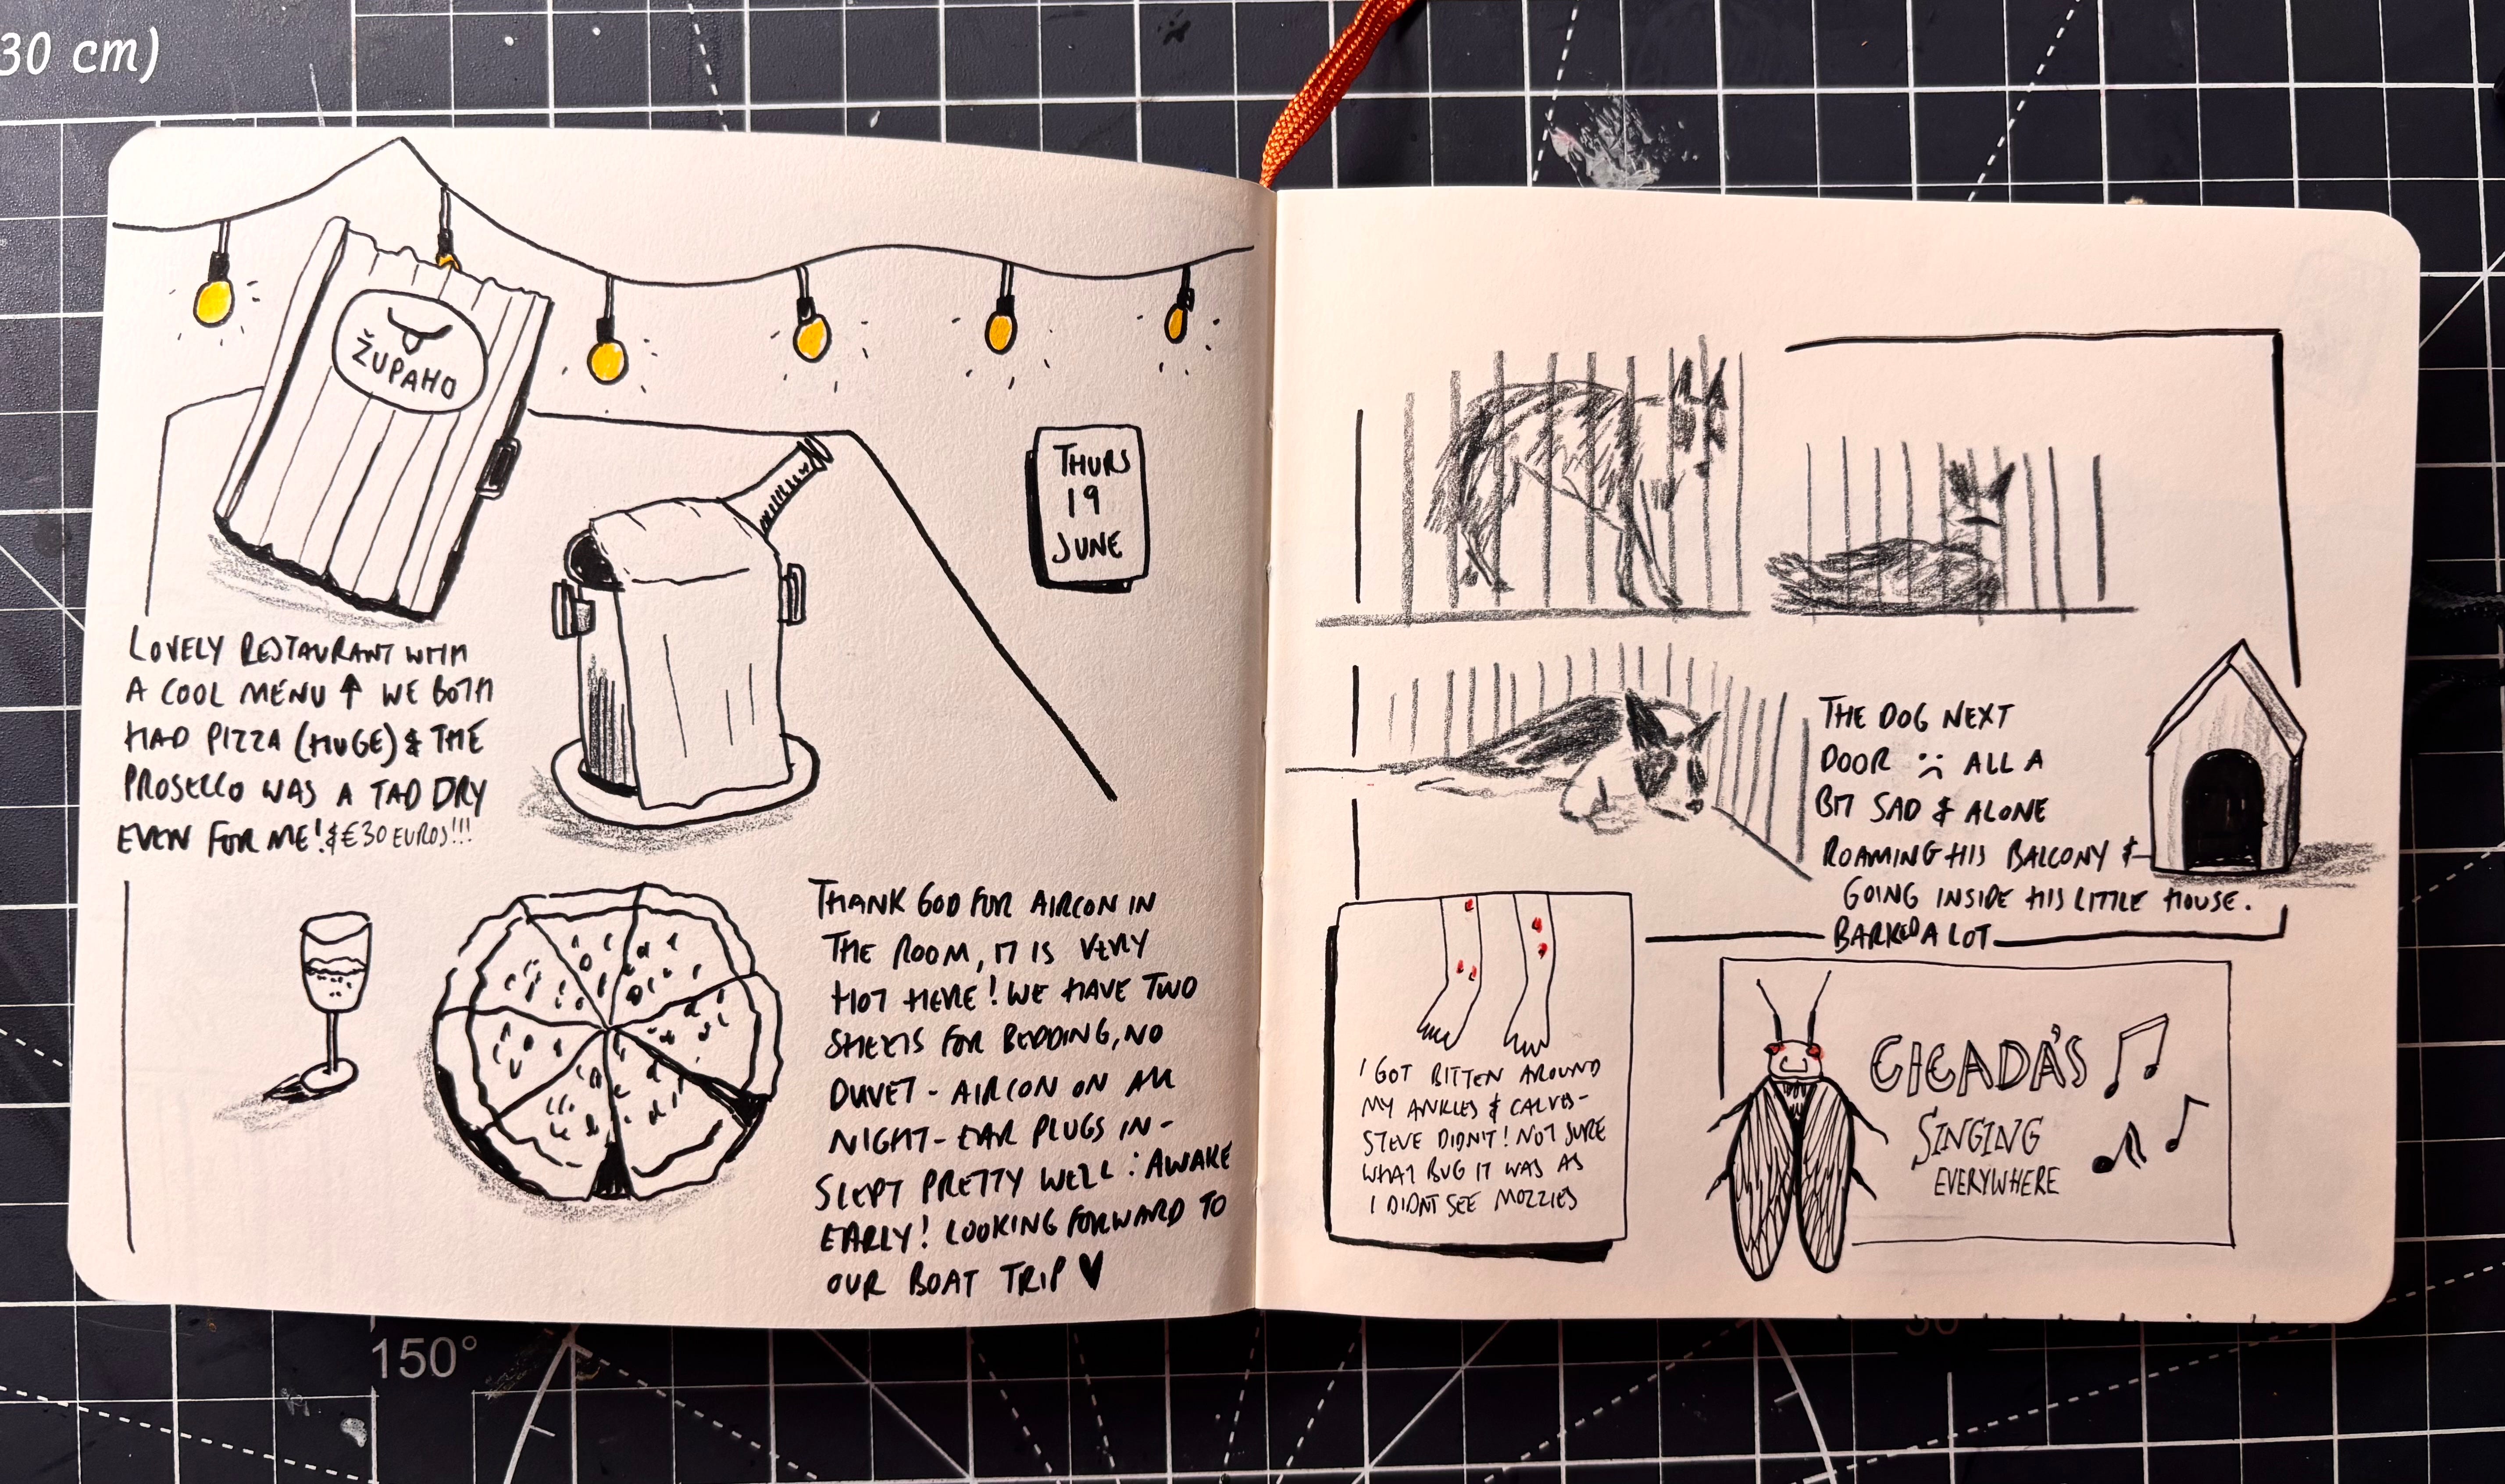 30 cm)
ŽUPAHO
THURS
19
JUNE
LOVELY RESTAURANT WITH
A COOL MENU ↑ WE BOTH
HAD PIZZA (HUGE) & THE
PROSECCO WAS A TAD DRY
EVEN FOR ME! & €30 EUROS!!!
THANK GOD FOR AIRCON IN
THE ROOM, IT IS VERY
HOT HERE! WE HAVE TWO
SHEETS FOR BEDDING, NO
DUVET - AIRCON ON ALL
NIGHT - EAR PLUGS IN -
SLEPT PRETTY WELL : AWAKE
EARLY! LOOKING FORWARD TO
OUR BOAT TRIP ♥
THE DOG NEXT
DOOR :( ALL A
BIT SAD & ALONE
ROAMING HIS BALCONY &
GOING INSIDE HIS LITTLE HOUSE.
BARKED A LOT
I GOT BITTEN AROUND
MY ANKLES & CALVES -
STEVE DIDN'T! NOT SURE
WHAT BUG IT WAS AS
I DIDNT SEE MOZZIES
CICADA'S
SINGING
EVERYWHERE
150°